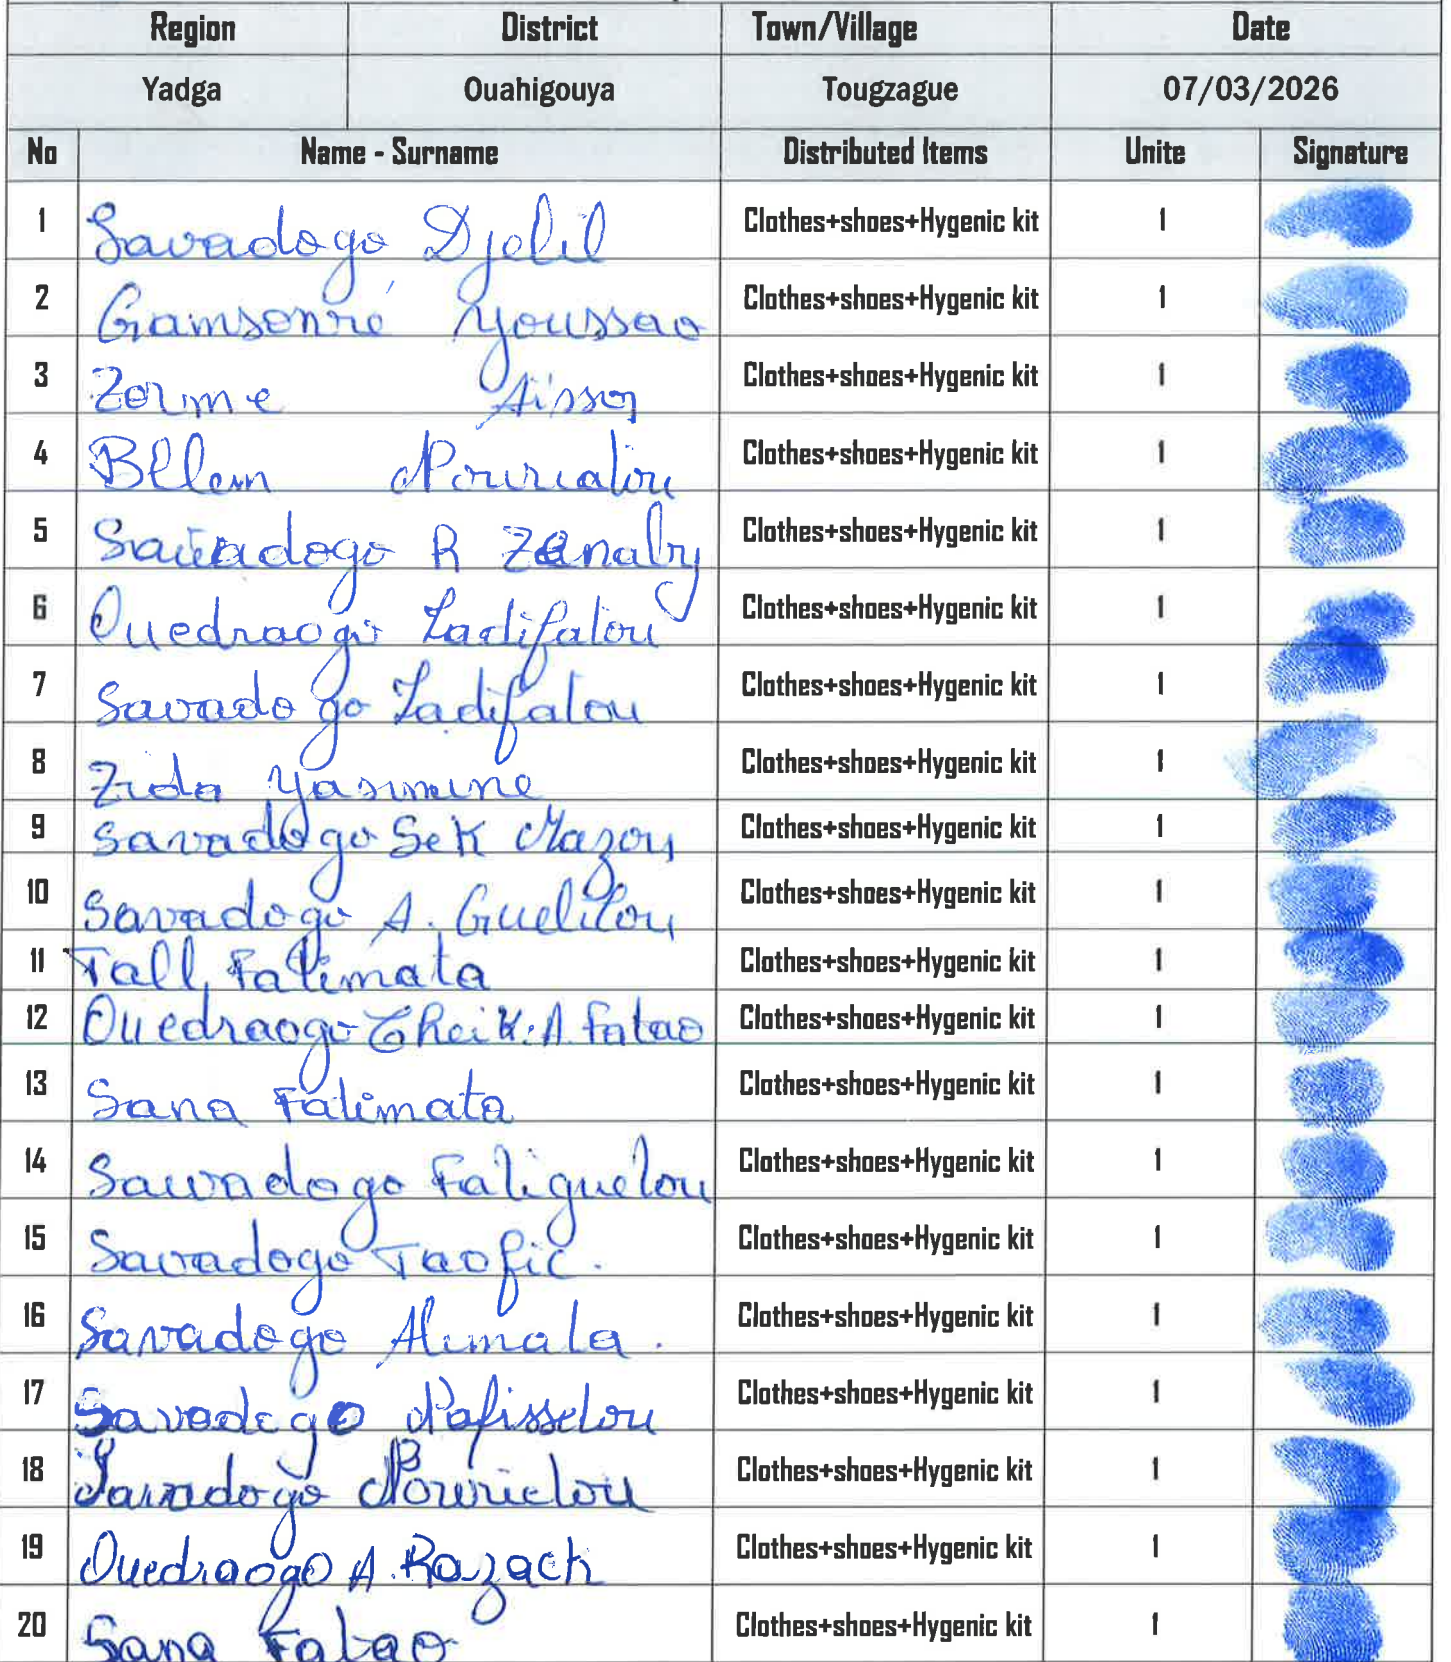 Region District Town/Village Date
Yadga Ouahigouya Tougzague 07/03/2026
No Name - Surname Distributed Items Unite Signature
1 Savadogo Djelil Clothes+shoes+Hygenic kit 1
2 Gamsonré Youssao Clothes+shoes+Hygenic kit 1
3 Zorme Aissa Clothes+shoes+Hygenic kit 1
4 Bllem Nouriatou Clothes+shoes+Hygenic kit 1
5 Savadogo R Clothes+shoes+Hygenic kit 1
6 Ouedraogo Ladifatou Clothes+shoes+Hygenic kit 1
7 Savadogo Ladifatou Clothes+shoes+Hygenic kit 1
8 Zida Yasmine Clothes+shoes+Hygenic kit 1
9 Savadogo SeK Mazou Clothes+shoes+Hygenic kit 1
10 Savadogo A. Clothes+shoes+Hygenic kit 1
11 Tall Fatimata Clothes+shoes+Hygenic kit 1
12 Ouedraogo CheiK.A Fatao Clothes+shoes+Hygenic kit 1
13 Sana Fatimata Clothes+shoes+Hygenic kit 1
14 Sawadogo Faliguetou Clothes+shoes+Hygenic kit 1
15 Savadogo Taofic. Clothes+shoes+Hygenic kit 1
16 Savadogo Alimata. Clothes+shoes+Hygenic kit 1
17 Savadogo Nafissetou Clothes+shoes+Hygenic kit 1
18 Savadogo Clothes+shoes+Hygenic kit 1
19 Ouedraogo A. Razack Clothes+shoes+Hygenic kit 1
20 Sana Fatao Clothes+shoes+Hygenic kit 1